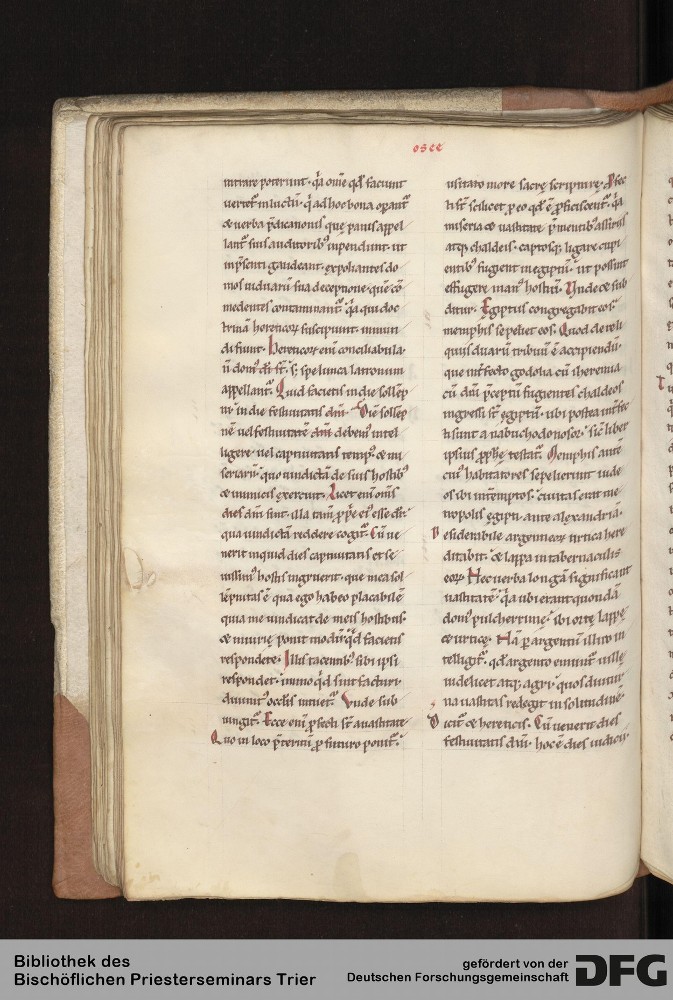 osee
intrare poterunt. q̄a om̄e qd̕ faciunt
vertet̕ in luctū. q̄a ad hoc bona oꝑant̕
& verba p̄dicationis que panis appel
lant̕ suis auditorib᷒ inpendunt. ut
inp̄senti gaudeant. expoliantes do
mos uiduarū sua deceptione. que cō
medentes contaminant̕ q̄a qui doc
trinā hereticoꝝ suscipiunt. inmun
di fiunt. Hereticoꝝ enī conciliabula.
n̄ dom᷒ dī st̄. s; spelunca latronum
appellant̕. Quid facietis in die sollēp
ni. in die festiuitatis dn̄i. Diē sollēp
nē uel festiuitatē dn̄i debem᷒ intel
ligere. uel captiuitatis temp᷒. & mi
seriarū. quo uindictā de suis hostib᷒
& inimicis exercuit. Licet enī om̄s
dies dn̄i sint. illa tam̄ ꝓpe ei᷒ esse dr̄.
qua uindictā reddere cogit̕. Cū ue
nerit inquid dies captiuitatis et se
uissim᷒ hostis ingruerit. que mea sol
lēpnitas ē qua ego habeo placabilē
quia me uindicat de meis hostibus.
& iniurię ponit modū. qd̕ facietis
respondete. Illis tacentib᷒ sibi ipsi
respondet. immo qd̕ sint facturi
diuinit᷒ oc̄lis intuet̕. Vnde sub
iungit̕. Ecce enī ꝓfecti st̄ a uastitate
Quo in loco p̄teritū ꝓ futuro ponit̕.
usitato more sacrę scripturę. Ꝓfec
ti st̄ scilicet ꝓ eo qd̕ ē ꝓficiscent̕. q̄a
miseria & uastitate p̄mentib᷒ assiriis
atq; chaldeis. captosq; ligare cupi
entib᷒ fugient in egiptū. ut possint
effugere man᷒ hostiū. Vnde & sub
ditur. Egiptus congregabit eos.
memphis sepeliet eos. Quod de reli
quiis duarū tribuū ē accipiendū.
que interfecto godolia cū iheremia
cū dn̄i p̄ceptū fugientes chaldeos
ingressi st̄ egiptū. ubi postea inter̄fec
ti sunt a nabuchodonosor. sic̄ liber
ipsius ꝓphe testat̕. Memphis autē
cui᷒ habitatores sepelierunt iude
os ibi interemptos. ciuitas erat me
tropolis egipti. ante alexandriā.
Desiderabile argenteoꝝ urtica here
ditabit. & lappa in tabernaculis
eoꝝ. Hec uerba longā significant
uastitatē. q̄a ubi erant quondā
dom᷒ pulcherrimę. ibi ortę lappę
& urticę. Nā ꝑ argentū illud in
telligit̕. qd̕ argento emunt̕ uillę
uidelicet atq; agri. quos diutur
na uastitas redegit in solitudinē.
Dicit̕ & hereticis. Cū uenerit dies
festiuitatis dn̄i. hoc ē dies iudicii.
Bibliothek des
Bischöflichen Priesterseminars Trier
gefördert von der
Deutschen Forschungsgemeinschaft
DFG